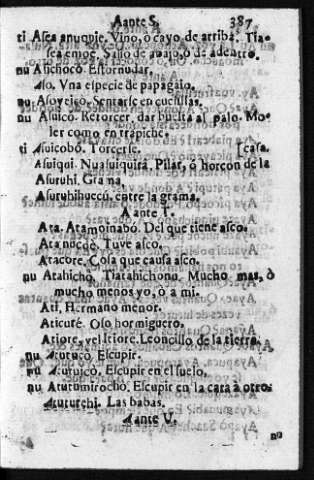 A ante S. 387
ti Asea anuquie. Vino, ò cayo de arriba. Tia-
sea emoe. Salio de abajo, ò de adentro.
nu Asichocò. Estornudar.
Aso. Vna especie de papagàlo.
nu Asoyeico. Sentarse en cuclillas.
nu Asuicò. Retorcer, dar buelta al palo. Mo-
ler como en trapiche.
ti Asuicobò. Torcerse. [casa.
Asuiqui. Nuasuiquira. Pilar, ò horcon de la
Asuruhì. Grama.
Asuruhihuecu. entre la grama.
A ante T.
Ata. Atamoinabò. Del que tiene asco.
Ata nocdè. Tuve asco.
Atacore. Cosa que causa asco.
nu Atahichò, Tiatahichonu. Mucho mas, ò
mucho menos yo, ò a mi.
Ati, Hermano menor.
Aticurè. Oso hormiguero.
Atiore, vel Itiore. Leoncillo de la tierra.
nu Atutucò. Escupir.
nu Atutuicò, Escupir en el suelo,
nu Atutimirochò, Escupir en la cara à otro.
Atuturehi. Las babas.
A ante V.
nu